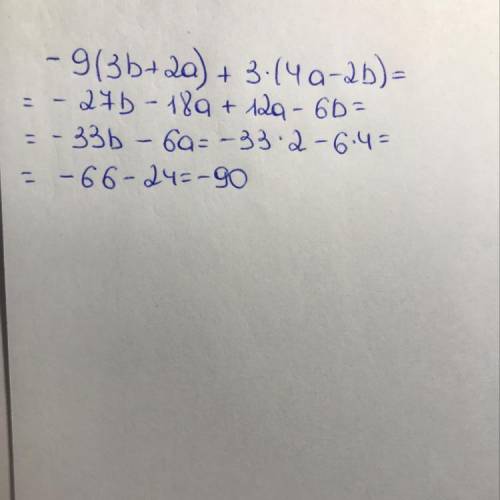 - 9(3b+2a) + 3·(4a-2b)=
= - 27b - 18a + 12a - 6b=
= - 33b - 6a = -33·2 - 6·4=
= -66-24=-90